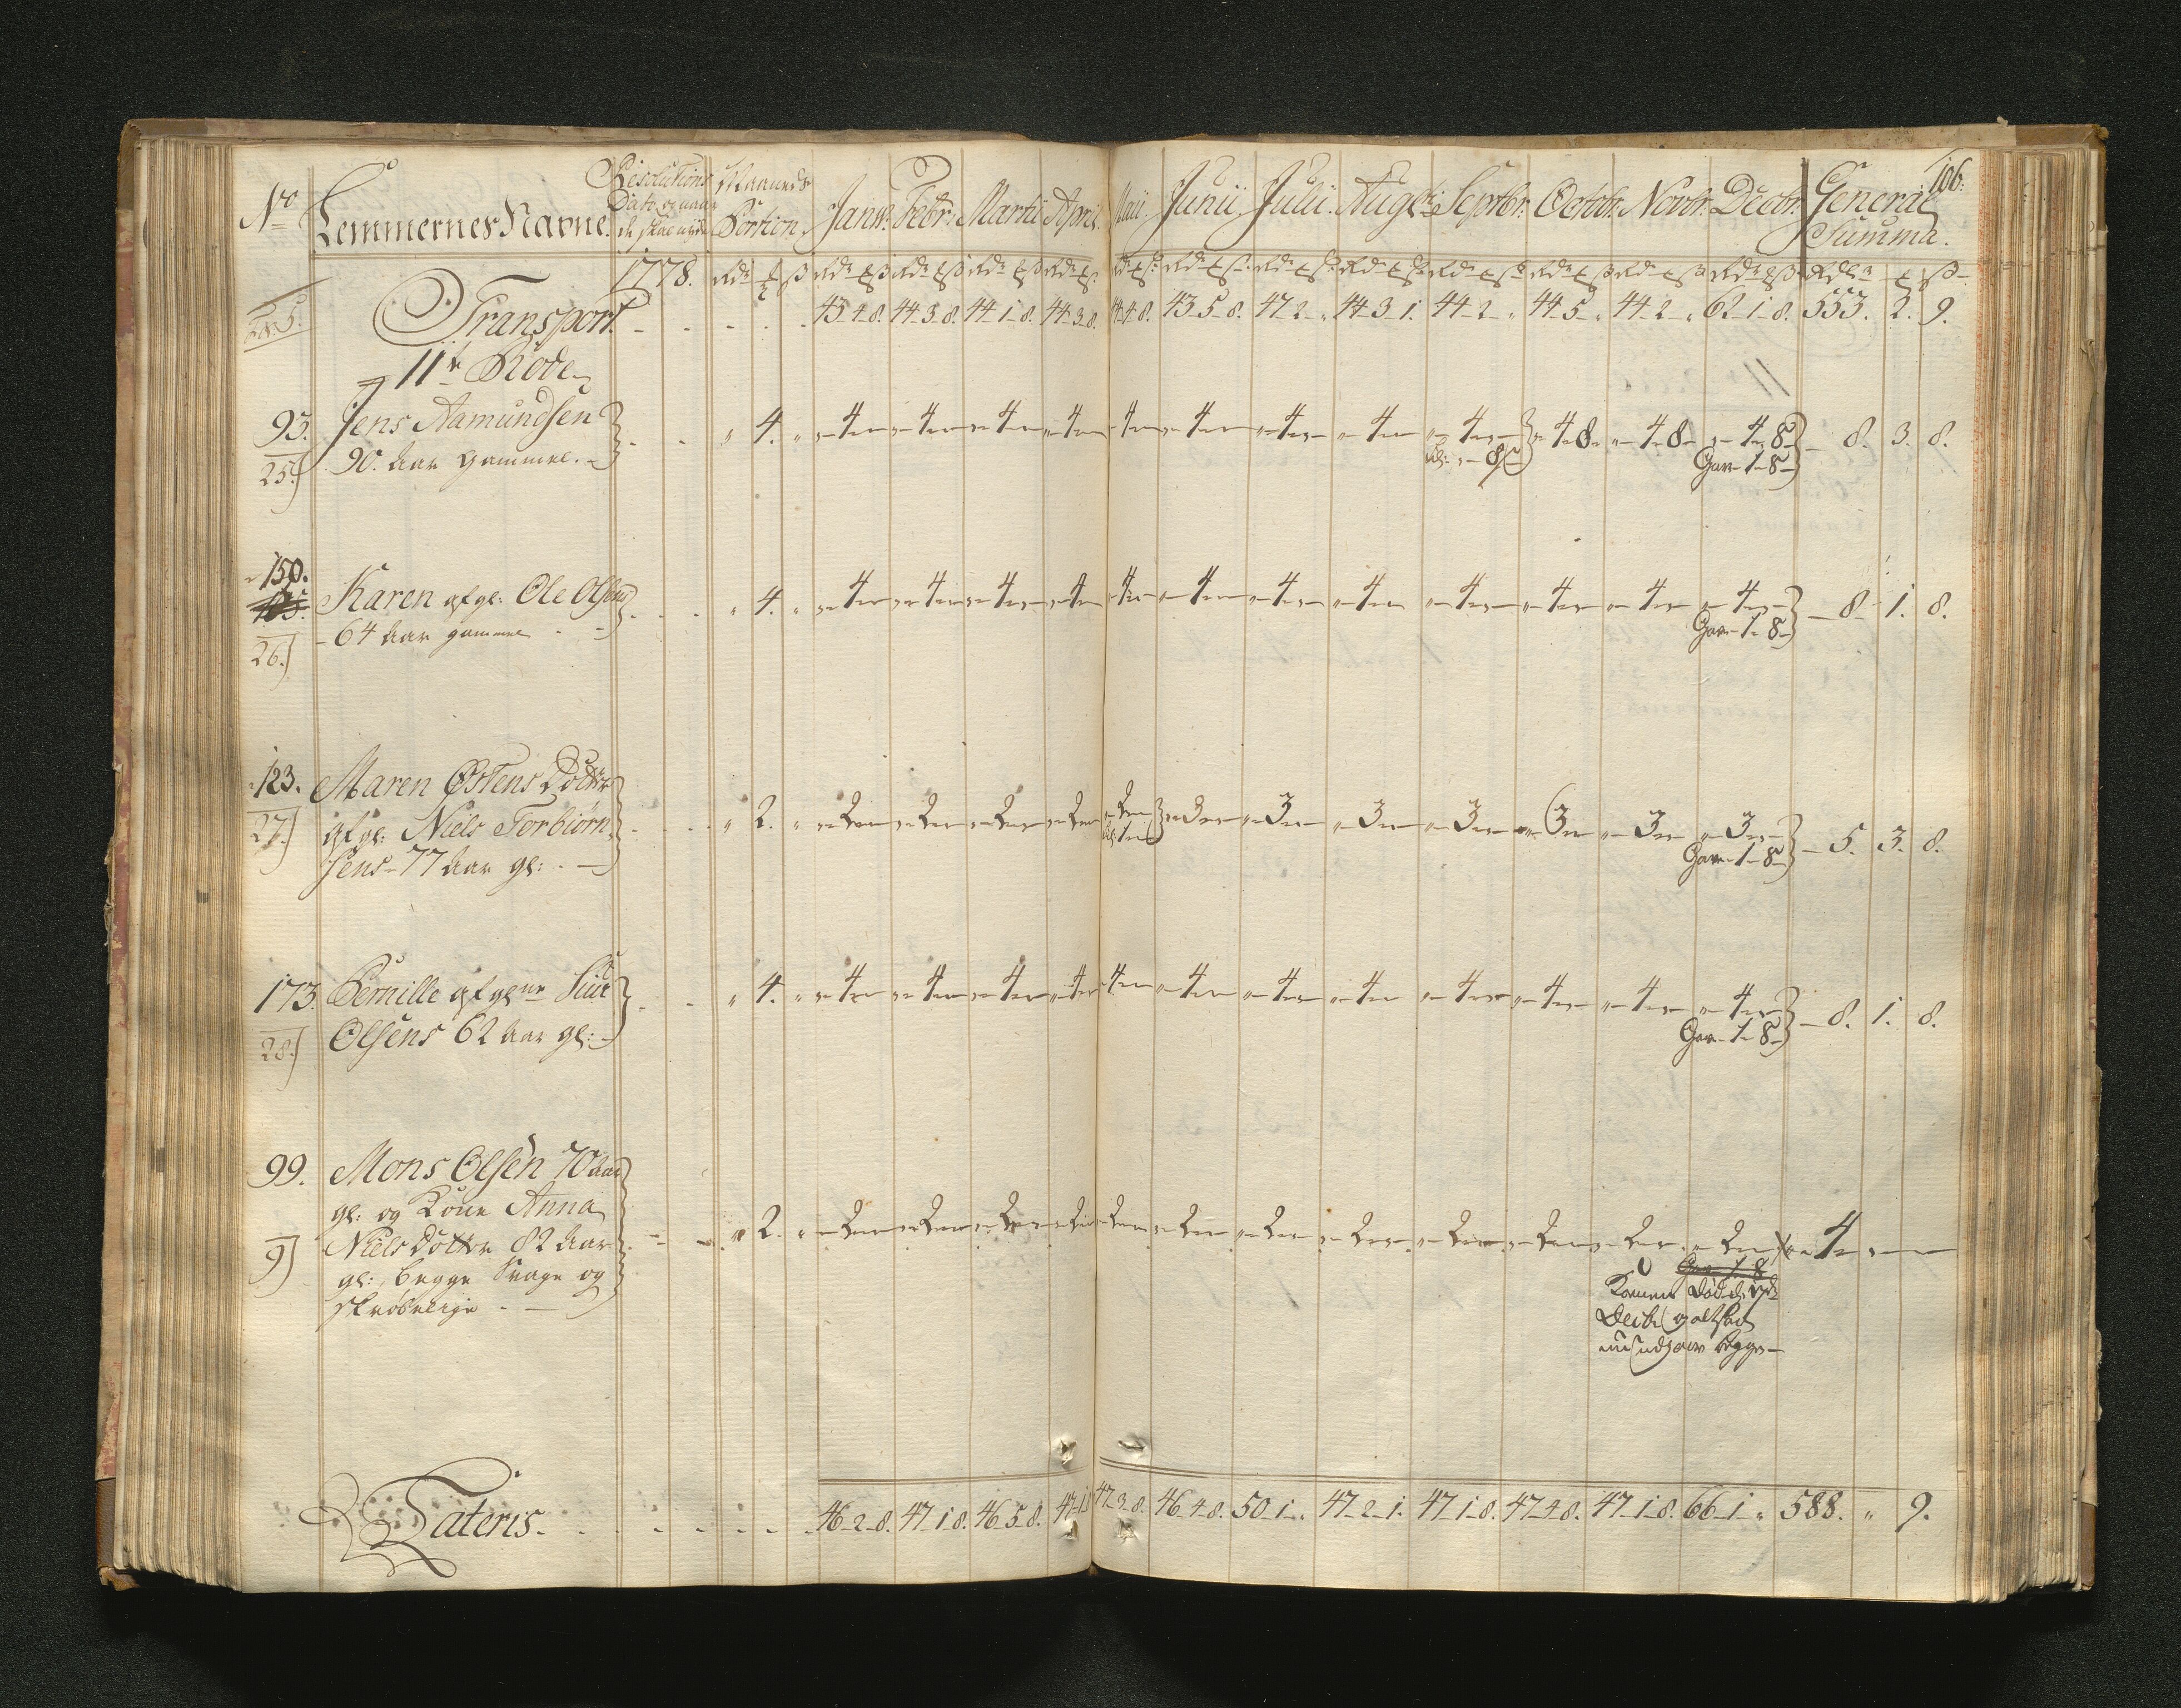 106.
No Lemmernes Navne. Resolutions Dato og naar de skal nyde Maaneds Portion Janu: Febr: Martii April: Maii Junii Julii. Augti: Septbr: Octobr: Novbr: Decbr: General Summa.
1778. Rd
Transport - - - - - 43 4 8. 44 3 8. 44 1 8. 44 3 8. 44 4 8. 43 5 8. 47 2 „ 44 3 1. 44 2 „ 44 5 „ 44 2 „ 62 1 8. 553. 2. 9.
11te Rode
93. Jens Aamundsen - - „ 4. „ „ 4 „ „ 4 „ „ 4 „ „ 4 „ „ 4 „ „ 4 „ „ 4 „ „ 4 „ „ 4 „ „ 4 8 „ 4 8 „ 4 8 - 8. 3. 8.
25) 90. Aar Gammel. - 8 ß Gave 1 8
150.
105. Karen afgl: Ole Olsens - - „ 4. „ „ 4 „ „ 4 „ „ 4 „ „ 4 „ „ 4 „ „ 4 „ „ 4 „ „ 4 „ „ 4 „ „ 4 „ „ 4 „ „ 4 „ - 8 1. 8.
26.) 64 Aar gammel - Gave 1 8
123. Maren Østens Dotter
27.) afgl: Niels Torbiørn - - „ 2. „ „ 2 „ „ 2 „ „ 2 „ „ 2 „ „ 2 „ „ 3 „ „ 3 „ „ 3 „ „ 3 „ „ 3 „ „ 3 „ „ 3 „ - 5. 3. 8.
sens 77 Aar gl: - „ 1 „ Gave 1 8
173. Pernille afgne Siur - - „ 4. „ „ 4 „ „ 4 „ „ 4 „ „ 4 „ „ 4 „ „ 4 „ „ 4 „ „ 4 „ „ 4 „ „ 4 „ „ 4 „ „ 4 „ - 8. 1. 8.
28.) Olsens 62 Aar gl: - Gave 1 8
99. Mons Olsen 70 Aar
gl: og Kone Anna
9) Niels Dotter 82 Aar - - „ 2. „ „ 2 „ „ 2 „ „ 2 „ „ 2 „ „ 2 „ „ 2 „ „ 2 „ „ 2 „ „ 2 „ „ 2 „ „ 2 „ „ 2 „ „ 4 „ „
gl:, begge Svage og Gave 1 8
skrøbelige - - Konen død
Decbr og altsaa
begge
Lateris - - - - - - 46 2 8. 47 1 8. 46 5 8. 47 1 47 3 8. 46 4 8. 50 1 „ 47 2 1. 47 1 8. 47 4 8. 47 1 8. 66 1 „ 588. „ 9.